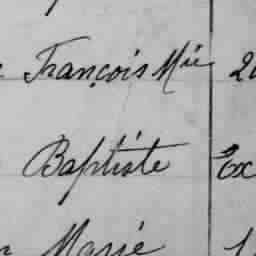 François Mie
Baptiste Ex
Marie